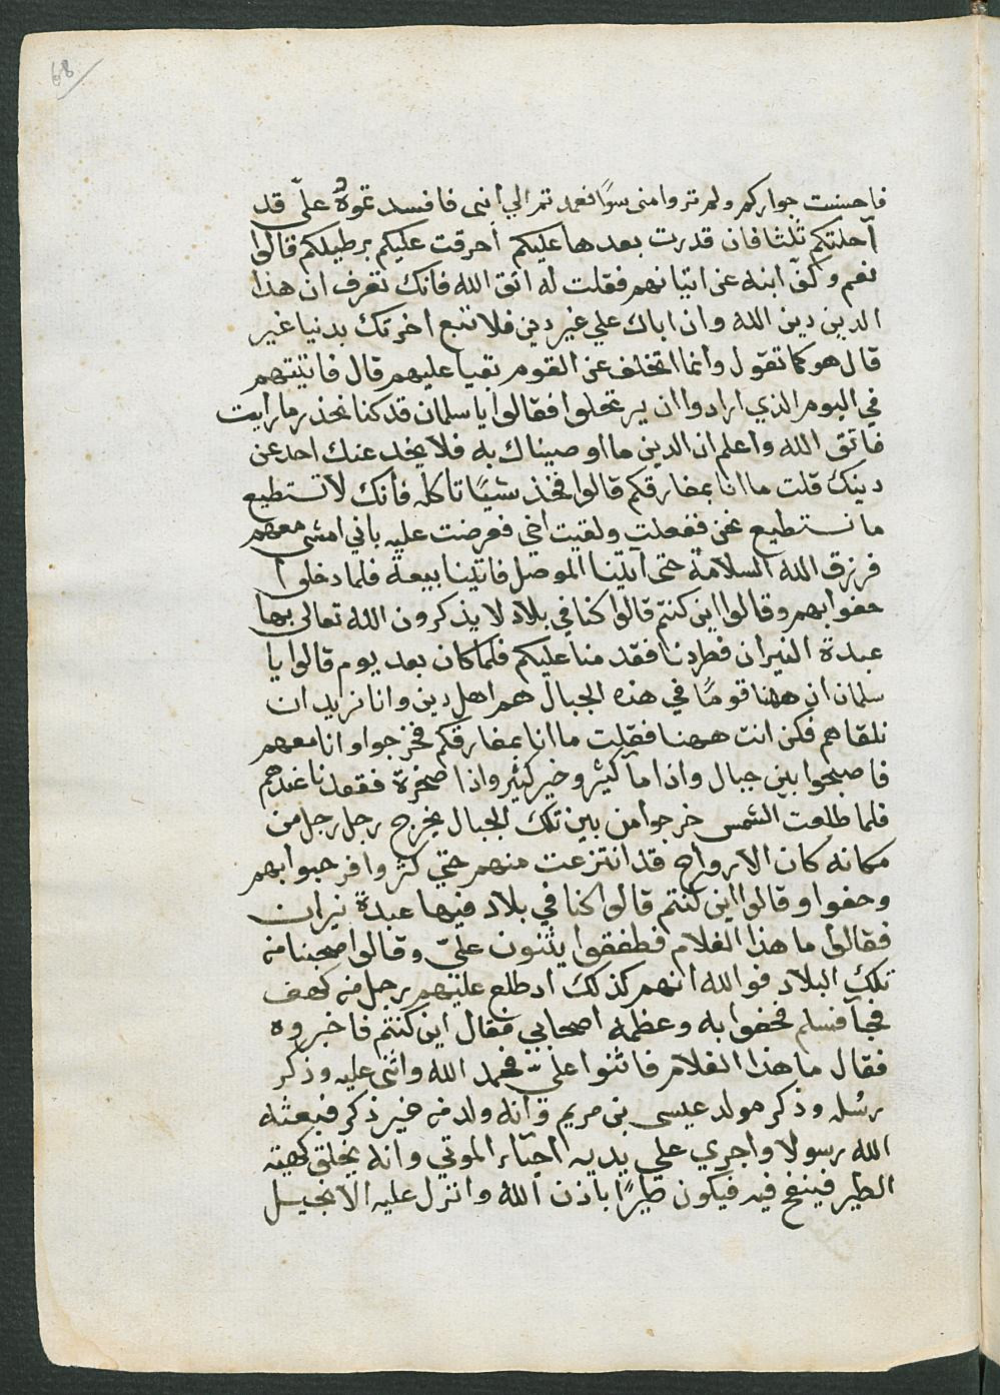 68
فاحسنت جواركم ولم تروا منى سوًا فعمدتم الي ابنى فافسدتموهُ عليّ قد
آجلتكم ثلثا فان قدرت بعدها عليكم احرقت عليكم برطيلكم قالوا
نعم وكفّ ابنه عن اتيانهم فقلت له اتق الله فانك تعرف ان هذا
الدين دين الله وان اباك علي غير دين فلا تبع اخرتك بدنيا غير
قال هو كما تقول وانما اتخلف عن القوم بقيا عليهم قال فاتيتهم
في اليوم الذي ارادوا ان يرتحلوا فقالوا يا سلمان قد كنا نحذر ما رايت
فاتق الله واعلم ان الدين ما اوصيناك به فلا يخدعنك احد عن
دينك قلت ما انا بمفارقكم قالوا فخذ شيًا تاكله فانك لا تستطيع
ما نستطيع نحن ففعلت ولقيت اخي فعرضت عليه باني امشى معهم
فرزق الله السلامة حتى اتينا الموصل فاتينا بيعة فلما دخلوا
حفوا بهم وقالوا اين كنتم قالوا كنا في بلاد لا يذكرون الله تعالى بها
عبدة النيران فطردنا فقدمنا عليكم فلما كان بعد يوم قالوا يا
سلمان ان ههنا قومًا في هذه الجبال هم اهل دين وانا نريد ان
نلقاهم فكن انت ههنا فقلت ما انا بمفارقكم فخرجوا وانا معهم
فاصبحوا بين جبال واذا مآ كثير وخبز كثير واذا صخرة فقعدنا عندهم
فلما طلعت الشمس خرجوا من بين تلك الجبال يخرج رجل رجل من
مكانه كان الارواح قد انتزعت منهم حتي كثروا فرحبوا بهم
وحفوا وقالوا اين كنتم قالوا كنا في بلاد فيها عبدة نيران
فقالوا ما هذا الغلام فطفقوا يثنون عليّ وقالوا صحبنا من
تلك البلاد فوالله انهم كذلك اد طلع عليهم رجل من كهف
فجآ فسلم فحفوا به وعظمه اصحابي فقال اين كنتم فاخبروه
فقال ما هذا الغلام فاثنوا عليّ فحمد الله واثنى عليه وذكر
رسُله وذكر مولد عيسى بن مريم وانه ولد من غير ذكر فبعثه
الله رسولا واجري علي يديه احيآء الموتي وانه يخلق كهيئة
الطير فينفخ فيه فيكون طيرًا باذن الله وانزل عليه الانجيل